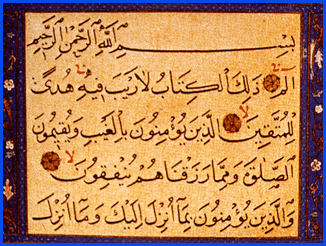 بِسْمِ اللَّهِ الرَّحْمَنِ الرَّحِيمِ
الم ذَلِكَ الْكِتَابُ لَا رَيْبَ فِيهِ هُدًى
لِلْمُتَّقِينَ الَّذِينَ يُؤْمِنُونَ بِالْغَيْبِ وَيُقِيمُونَ
الصَّلَوٰةَ وَمِمَّا رَزَقْنَاهُمْ يُنْفِقُونَ
وَالَّذِينَ يُؤْمِنُونَ بِمَا أُنْزِلَ إِلَيْكَ وَمَا أُنْزِلَ